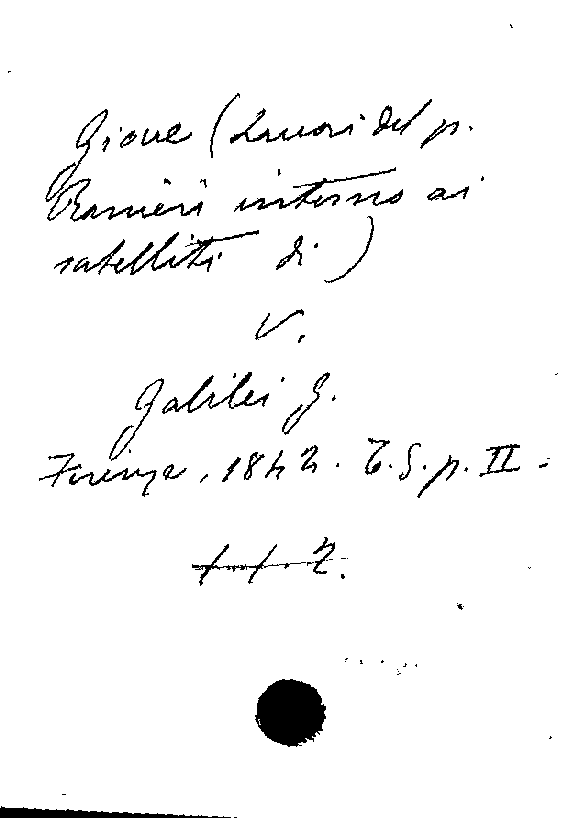 Giove (Lavori del p.
Ranieri intorno ai
satelliti di)
V.
Galilei G.
Firenze, 1842. T. 5. p. II.